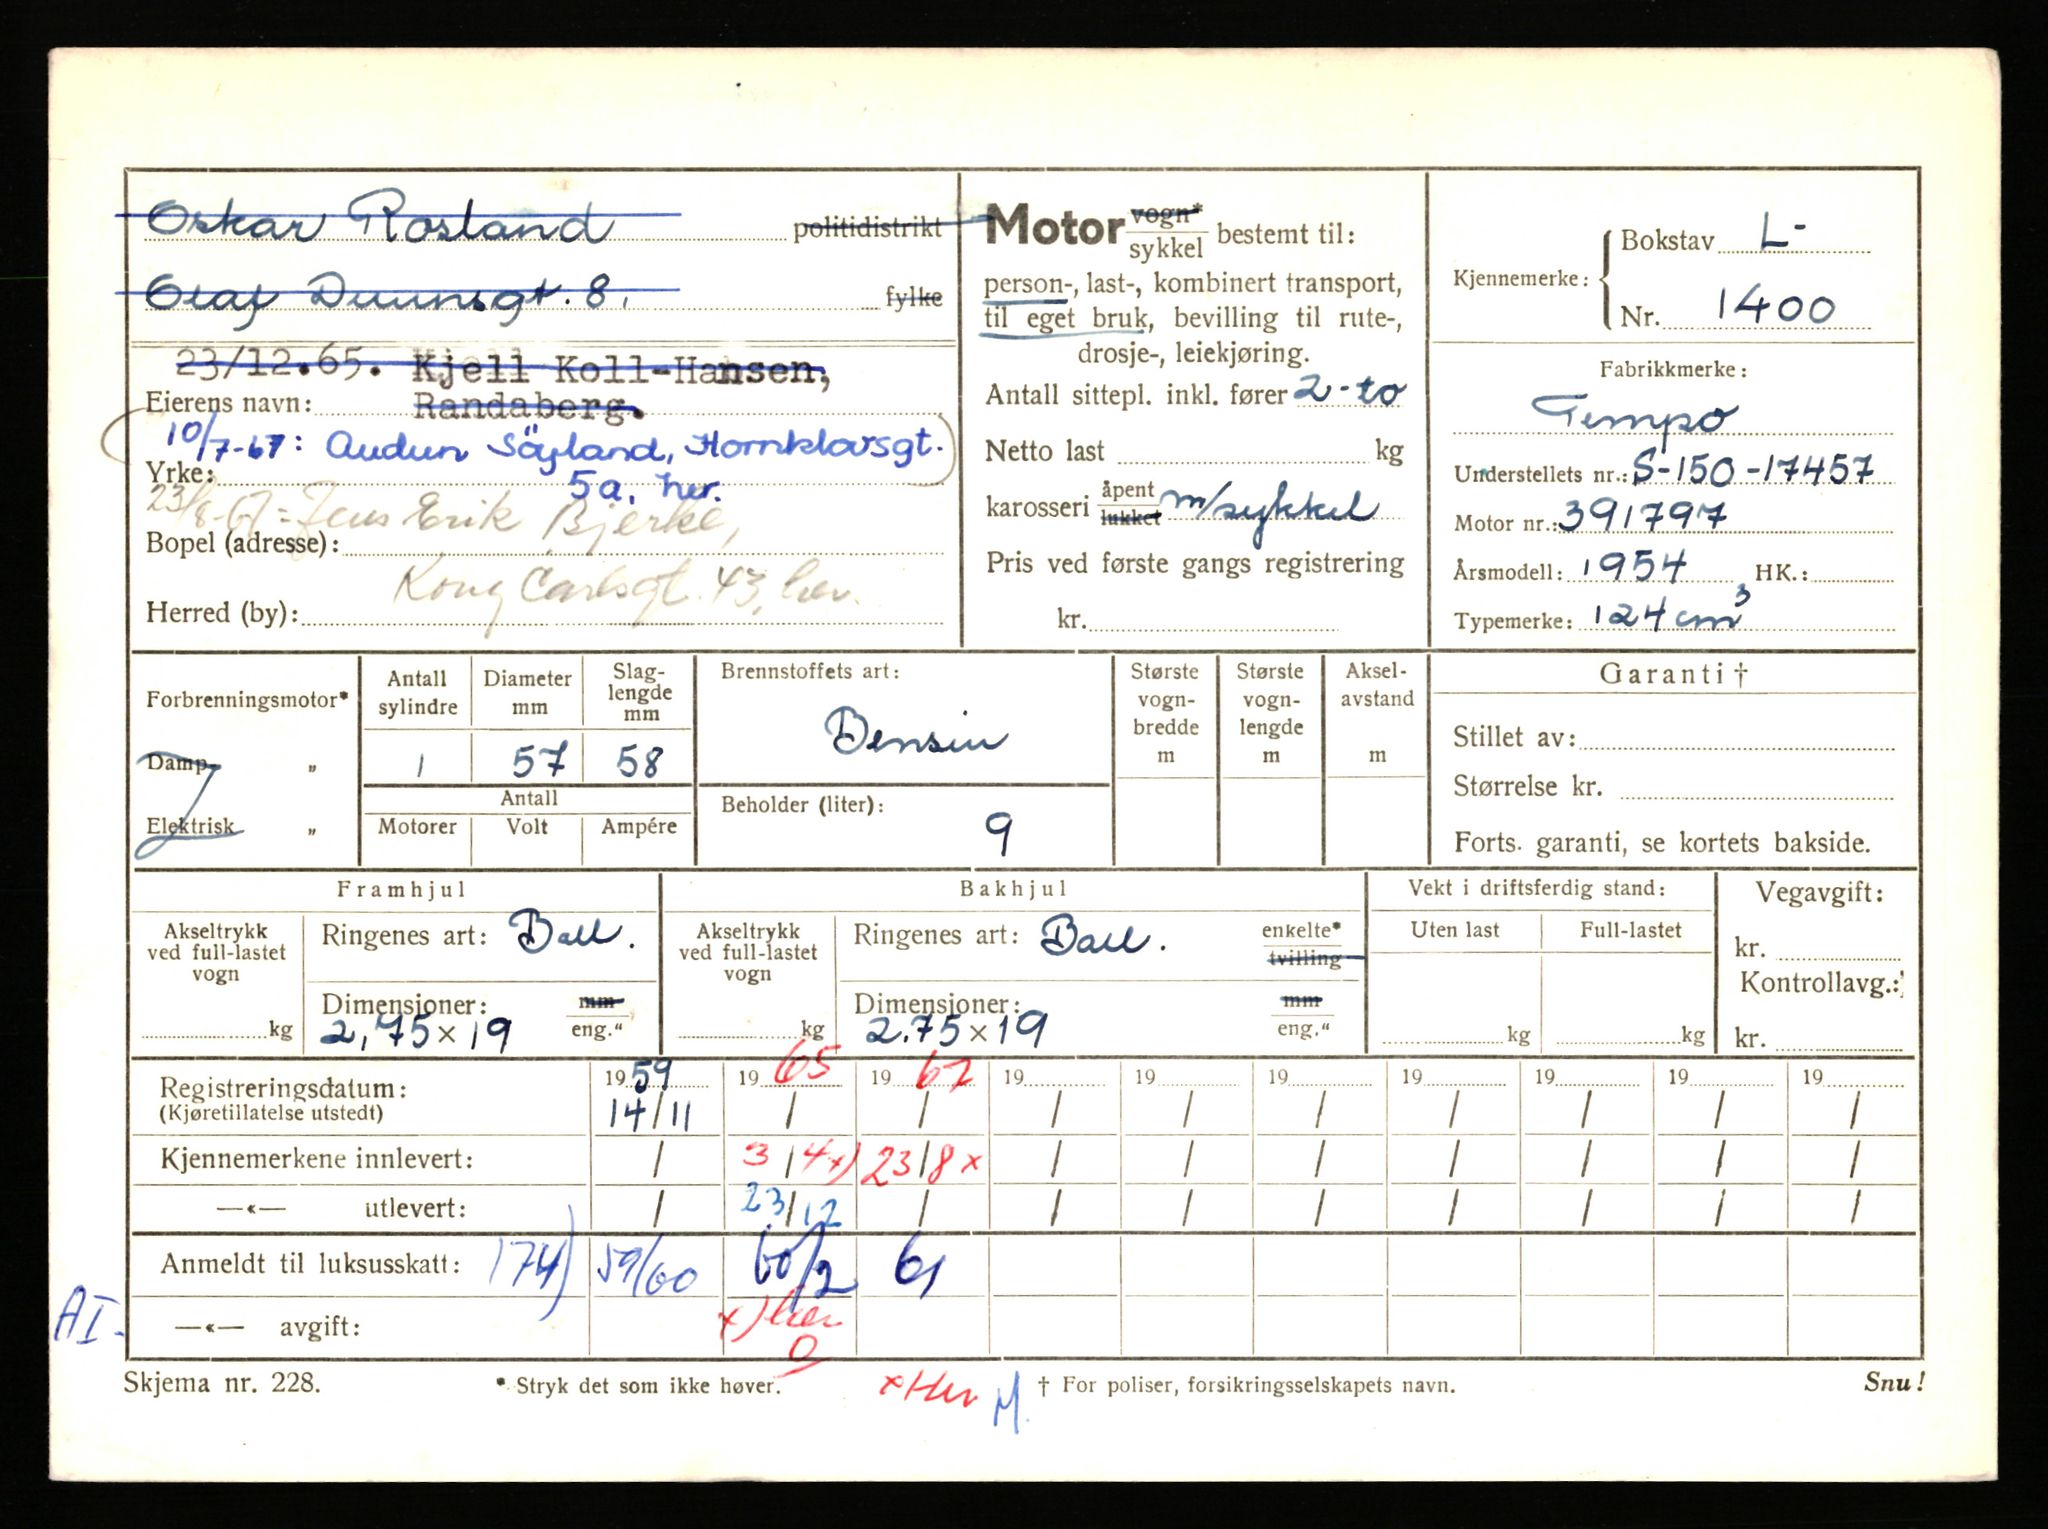 Oskar Rosland politidistrikt
Olaf Duunsgt. 8. fylke
23/12.65. Kjell Koll-Hansen,
Eierens navn: Randaberg.
10/7-67: Audun Söyland, Hornklovsgt.
Yrke: 5a, her.
23/8-67 = Jens Erik Bjerke,
Bopel (adresse):
Kong Carlsgt. 43, her.
Herred (by):
Motor vogn* sykkel bestemt til:
person-, last-, kombinert transport,
til eget bruk, bevilling til rute-,
drosje-, leiekjøring.
Antall sittepl. inkl. fører 2-to
Netto last kg
karosseri åpent lukket m/sykkel
Pris ved første gangs registrering
kr.
Kjennemerke: Bokstav L-
Nr. 1400
Fabrikkmerke:
Tempo
Understellets nr.: S-150-17457
Motor nr.: 391797
Årsmodell: 1954 HK.:
Typemerke: 124 cm³
Forbrenningsmotor*
Damp- „
Elektrisk „
Antall sylindre
Diameter mm
Slag-lengde mm
1 57 58
Antall
Motorer Volt Ampére
Brennstoffets art:
Bensin
Beholder (liter):
9
Største vogn-bredde m
Største vogn-lengde m
Aksel-avstand m
Garanti †
Stillet av:
Størrelse kr.
Forts. garanti, se kortets bakside.
Framhjul
Akseltrykk ved full-lastet vogn kg
Ringenes art: Ball.
Dimensjoner: mm eng."
2,75 × 19
Bakhjul
Akseltrykk ved full-lastet vogn kg
Ringenes art: Ball. enkelte* tvilling
Dimensjoner: mm eng."
2.75 × 19
Vekt i driftsferdig stand:
Uten last Full-lastet
kg kg
Vegavgift:
kr.
Kontrollavg.:
kr.
Registreringsdatum: 1959 1965 1967 19 19 19 19 19 19 19
(Kjøretillatelse utstedt) 14/11 / / / / / / / / /
Kjennemerkene innlevert: / 3/4 x) 23/8 x / / / / / / /
—«— utlevert: / 23/12 / / / / / / / /
Anmeldt til luksusskatt: 174) 59/60 60/2 61
AI-
—«— avgift: x) her
O
Skjema nr. 228. * Stryk det som ikke høver. x Her M. † For poliser, forsikringsselskapets navn. Snu!